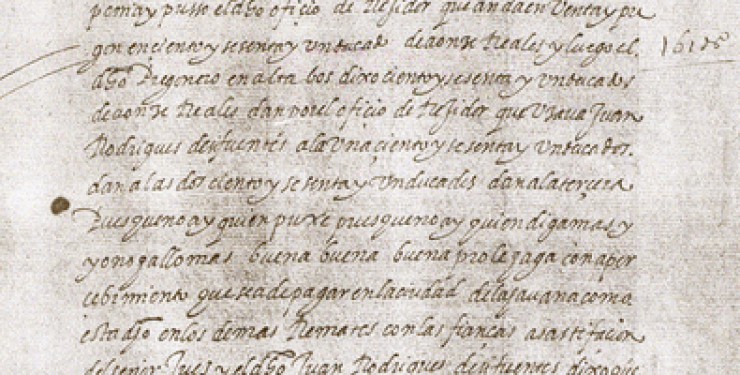 pona y pusso el dho oficio de Rejider que anda en Venta y pre
gon en ciento y sesenta y un ducados de aonse Reales y luego el
dho Pregonero en alta bos dixo ciento y sesenta y un ducados
de aonse Reales dan por el oficio de Rejider que Usava Juan
Rodrigues de sifuentes a la Una ciento y sesenta y un ducados.
dan a las dos ciento y sesenta y un ducados dan a la tercera
Pues que no ay quien puxe pues que no ay quien diga mas y
yo no gallo mas buena buena buena pro le haga con aper
cebimiento que sea de pagar en la ciudad de la javana como
esta dho en los demas Remates con las fianças a satisfacion
del señor Jues y el dho Juan Rodrigues de sifuentes dixo que